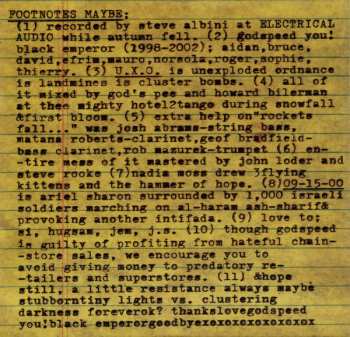 FOOTNOTES MAYBE;
(1) recorded by steve albini at ELECTRICAL
AUDIO while autumn fell. (2) godspeed you!
black emperor (1998-2002); aidan,bruce,
david,efrim,mauro,norsola,roger,sophie,
thierry. (3) U.X.O. is unexploded ordnance
is landmines is cluster bombs. (4) all of
it mixed by god's pee and howard bilerman
at thee mighty hotel2tango during snowfall
&first bloom. (5) extra help on"rockets
fall..." was josh abrams-string bass,
matana roberts-clarinet,geof bradfield-
bass clarinet,rob mazurek-trumpet (6) en-
-tire mess of it mastered by john loder and
steve rooke (7)nadia moss drew 3flying
kittens and the hammer of hope. (8)09-15-00
is ariel sharon surrounded by 1,000 israeli
soldiers marching on al-haram ash-sharif&
provoking another intifada. (9) love to;
si, hugsam, jem, j.s. (10) though godspeed
is guilty of profiting from hateful chain-
-store sales, we encourage you to
avoid giving money to predatory re-
-tailers and superstores. (11) &hope
still. a little resistance always maybe
stubborntiny lights vs. clustering
darkness foreverok? thankslovegodspeed
you!black emperorgoodbyexoxoxoxoxoxoxox